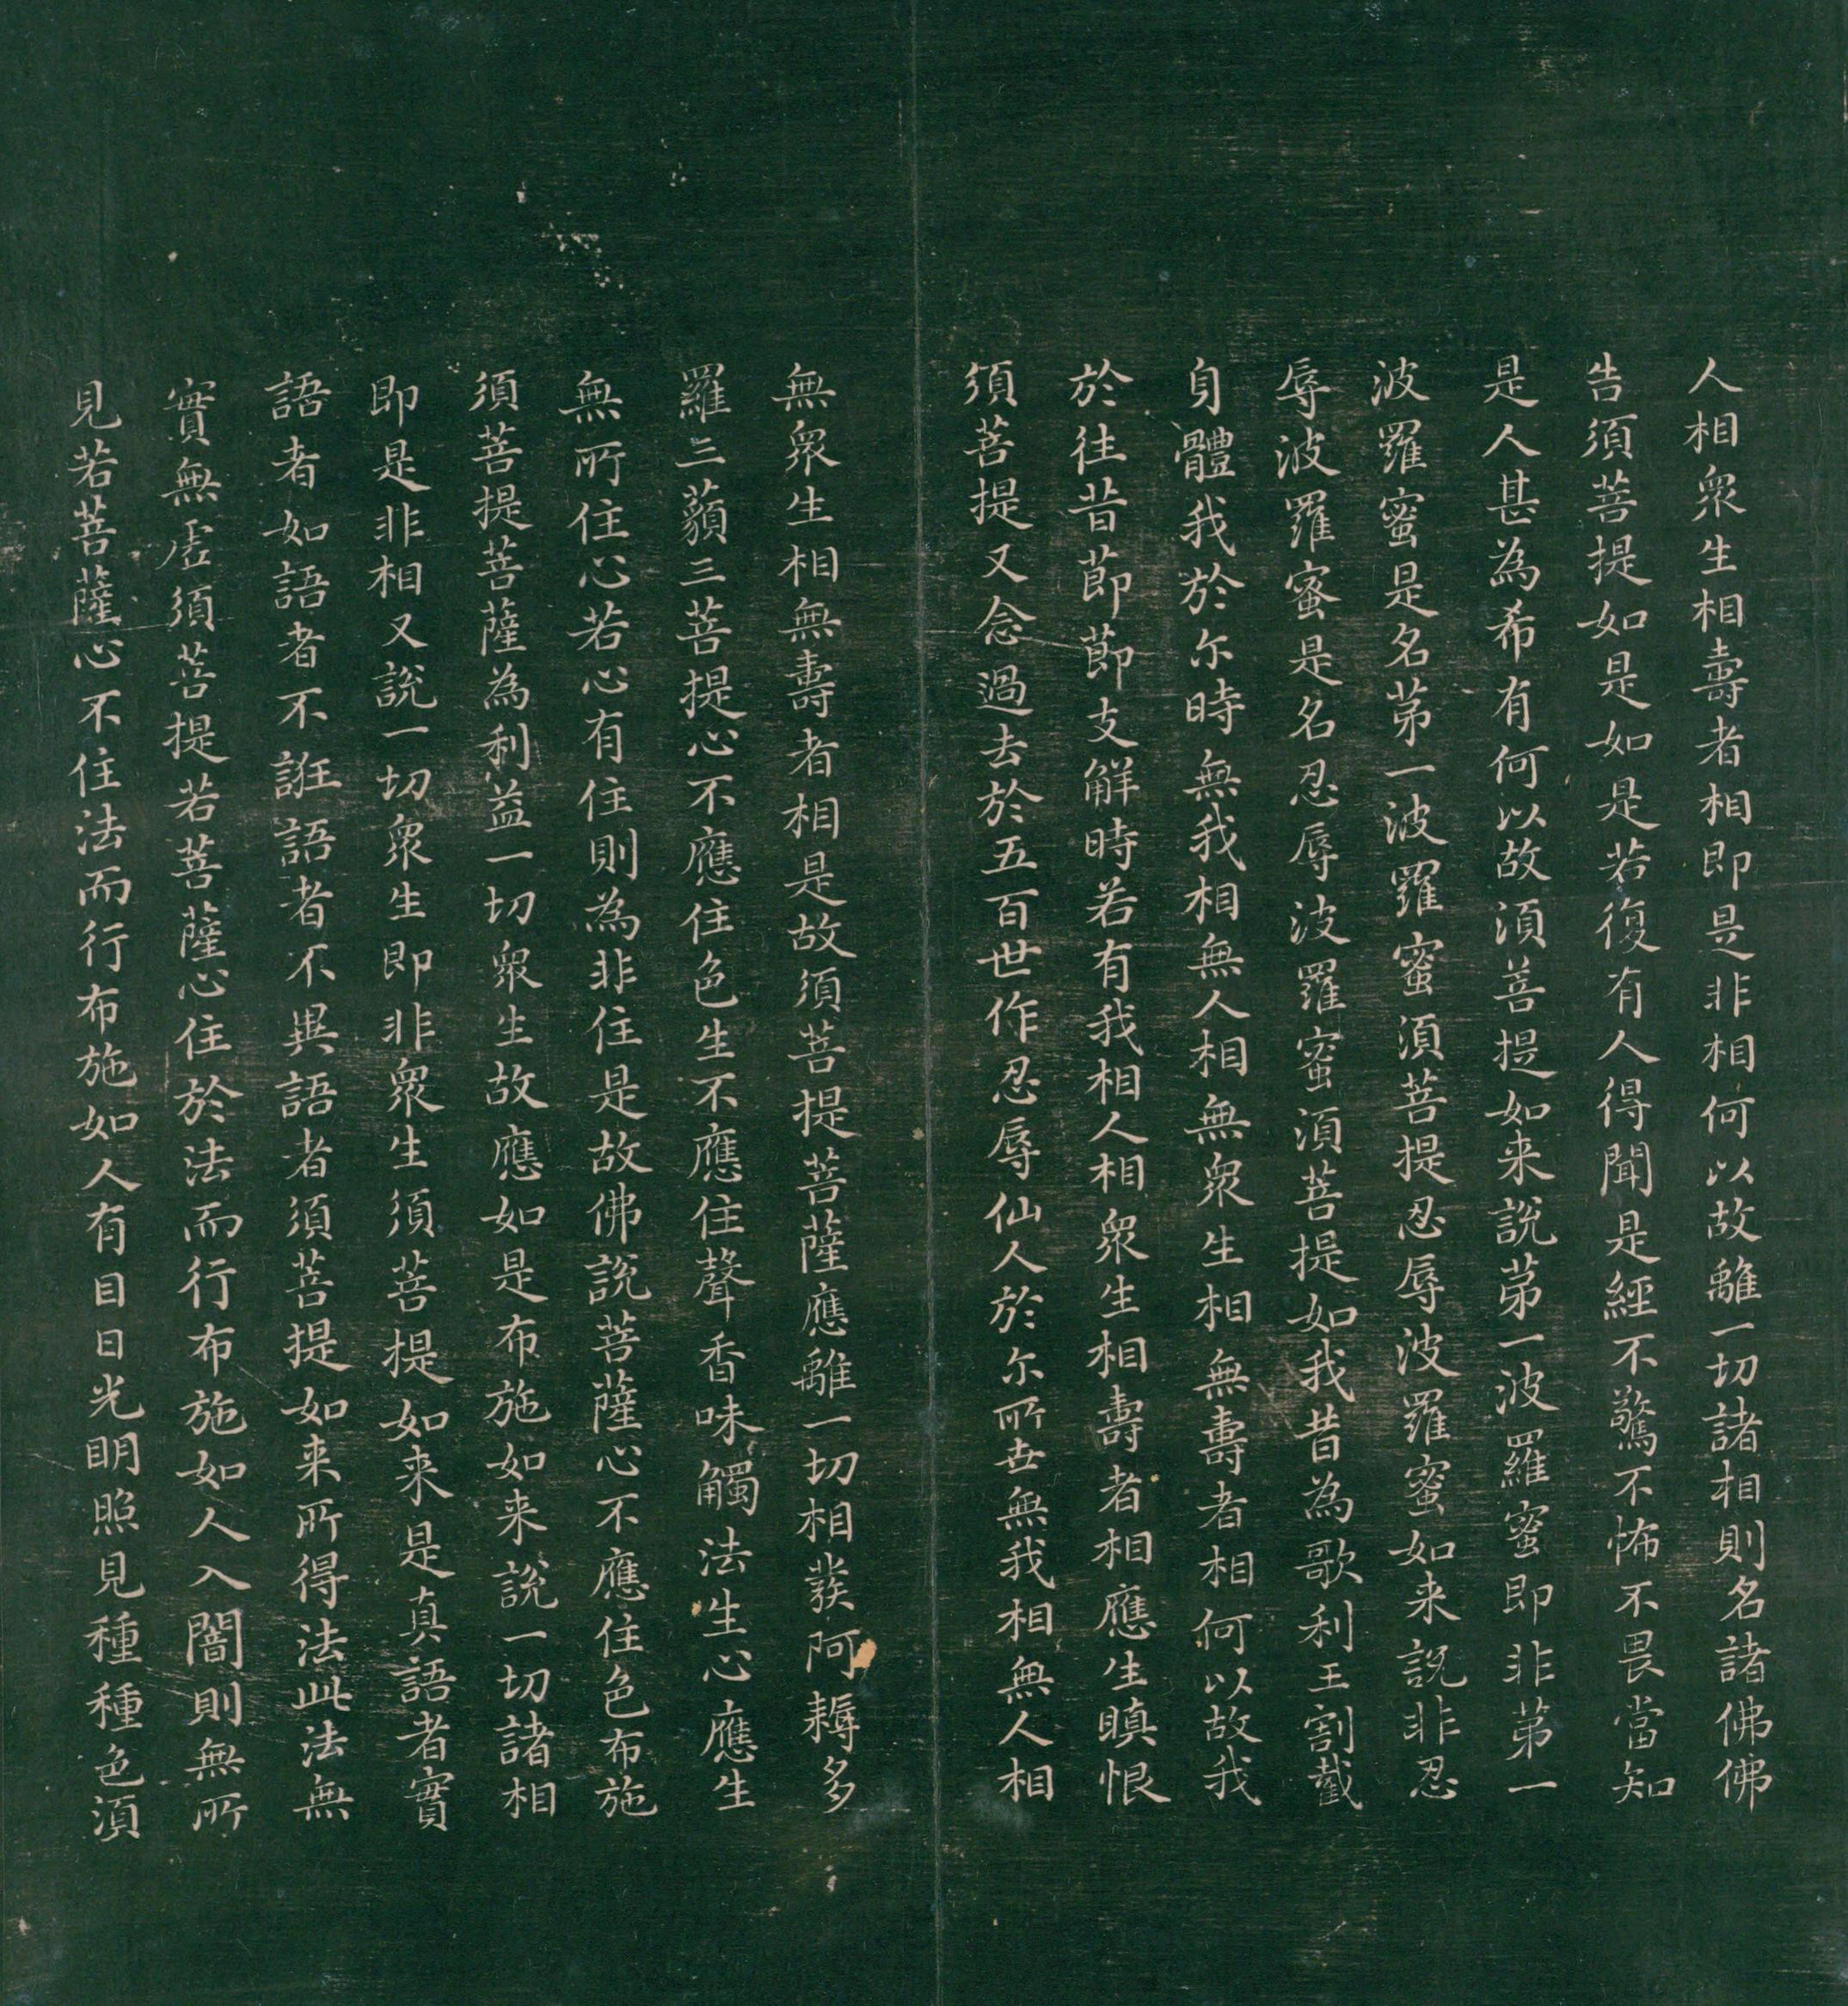 人相眾生相壽者相即是非相何以故離一切諸相則名諸佛佛
告須菩提如是如是若復有人得聞是經不驚不怖不畏當知
是人甚為希有何以故須菩提如来說第一波羅蜜即非第一
波羅蜜是名第一波羅蜜須菩提忍辱波羅蜜如来說非忍
辱波羅蜜是名忍辱波羅蜜須菩提如我昔為歌利王割截
身體我於尓時無我相無人相無眾生相無壽者相何以故我
於往昔節節支解時若有我相人相眾生相壽者相應生瞋恨
須菩提又念過去於五百世作忍辱仙人於尓所世無我相無人相
無眾生相無壽者相是故須菩提菩薩應離一切相發阿耨多
羅三藐三菩提心不應住色生不應住聲香味觸法生心應生
無所住心若心有住則為非住是故佛說菩薩心不應住色布施
須菩提菩薩為利益一切眾生故應如是布施如来說一切諸相
即是非相又說一切眾生即非眾生須菩提如来是真語者實
語者如語者不誑語者不異語者須菩提如来所得法此法無
實無虛須菩提若菩薩心住於法而行布施如人入闇則無所
見若菩薩心不住法而行布施如人有目日光明照見種種色須